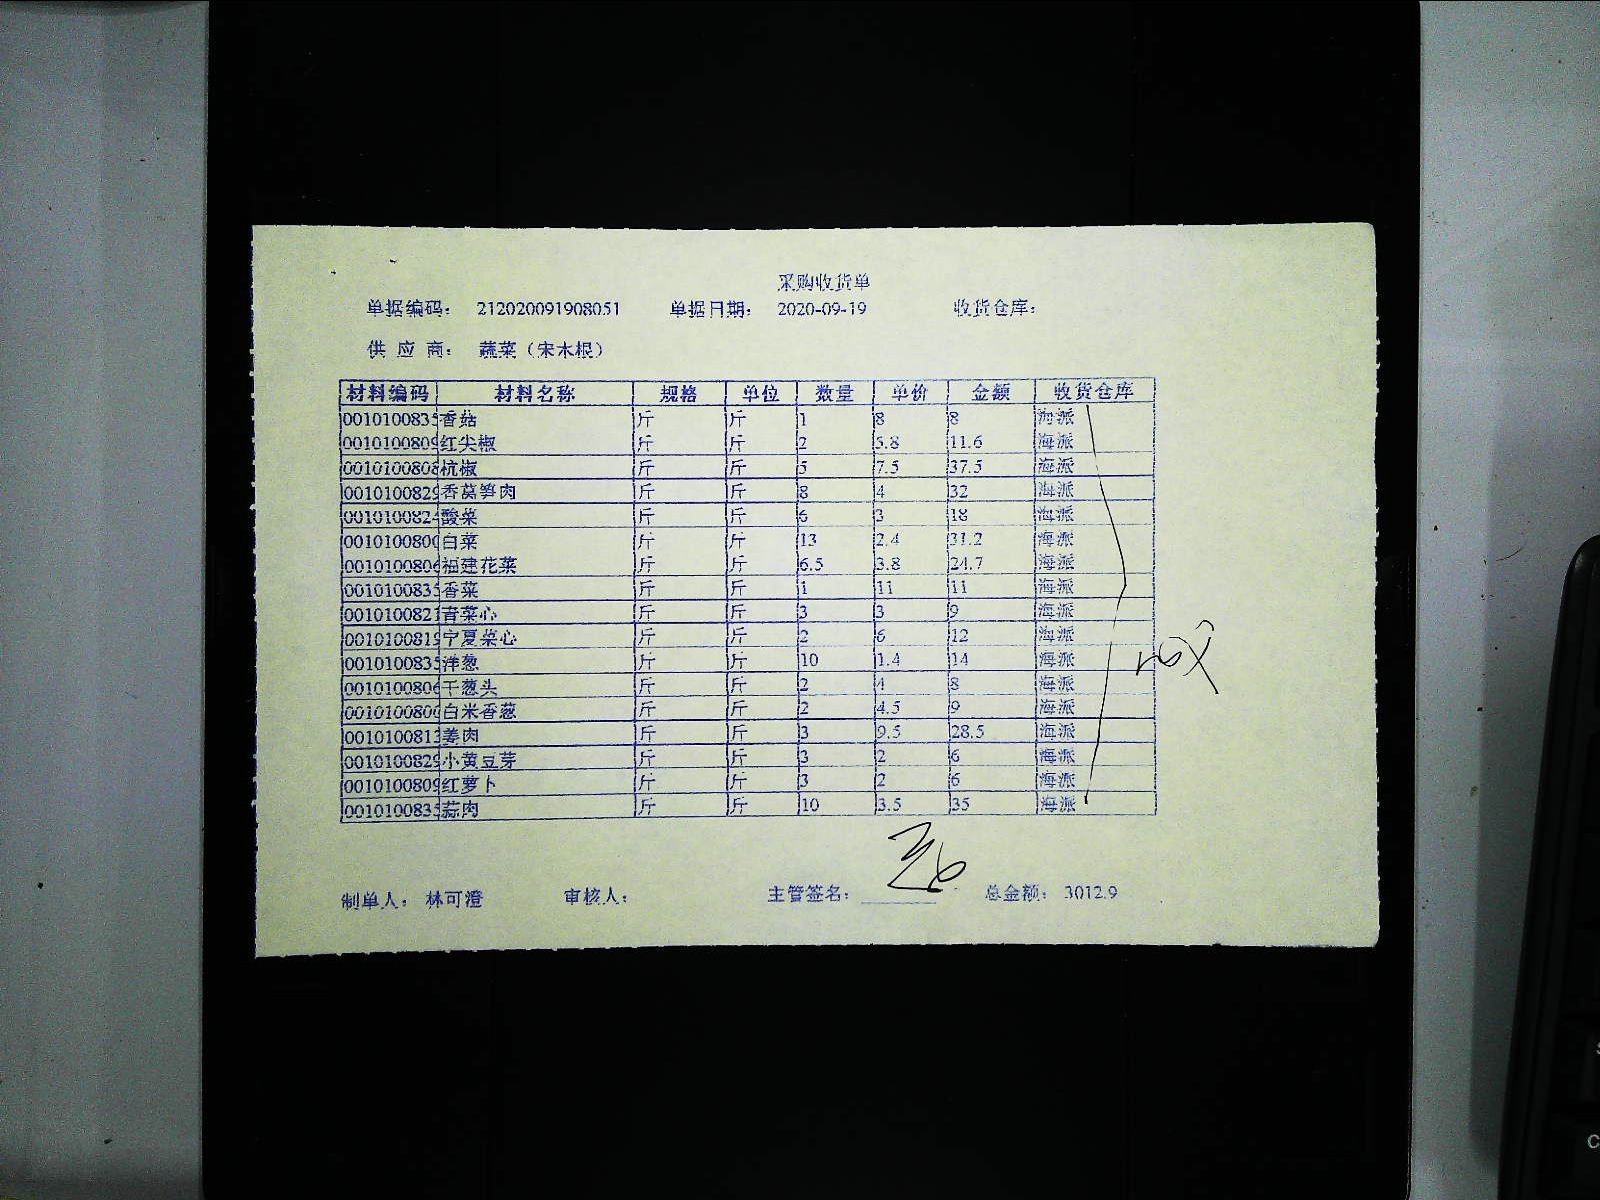 采购收货单
单据编码： 212020091908051 单据日期： 2020-09-19 收货仓库：
供 应 商： 蔬菜（宋木根）
材料编码 材料名称 规格 单位 数量 单价 金额 收货仓库
0010100835 香菇 斤 斤 1 8 8 海派
0010100809 红尖椒 斤 斤 2 5.8 11.6 海派
0010100808 杭椒 斤 斤 5 7.5 37.5 海派
0010100829 香莴笋肉 斤 斤 8 4 32 海派
0010100824 酸菜 斤 斤 6 3 18 海派
0010100800 白菜 斤 斤 13 2.4 31.2 海派
0010100806 福建花菜 斤 斤 6.5 3.8 24.7 海派
0010100835 香菜 斤 斤 1 11 11 海派
0010100821 青菜心 斤 斤 3 3 9 海派
0010100819 宁夏菜心 斤 斤 2 6 12 海派
0010100835 洋葱 斤 斤 10 1.4 14 海派
0010100806 干葱头 斤 斤 2 4 8 海派
0010100800 白米香葱 斤 斤 2 4.5 9 海派
0010100813 姜肉 斤 斤 3 9.5 28.5 海派
0010100829 小黄豆芽 斤 斤 3 2 6 海派
0010100809 红萝卜 斤 斤 3 2 6 海派
0010100835 蒜肉 斤 斤 10 3.5 35 海派
制单人： 林可澄 审核人： 主管签名： 总金额： 3012.9